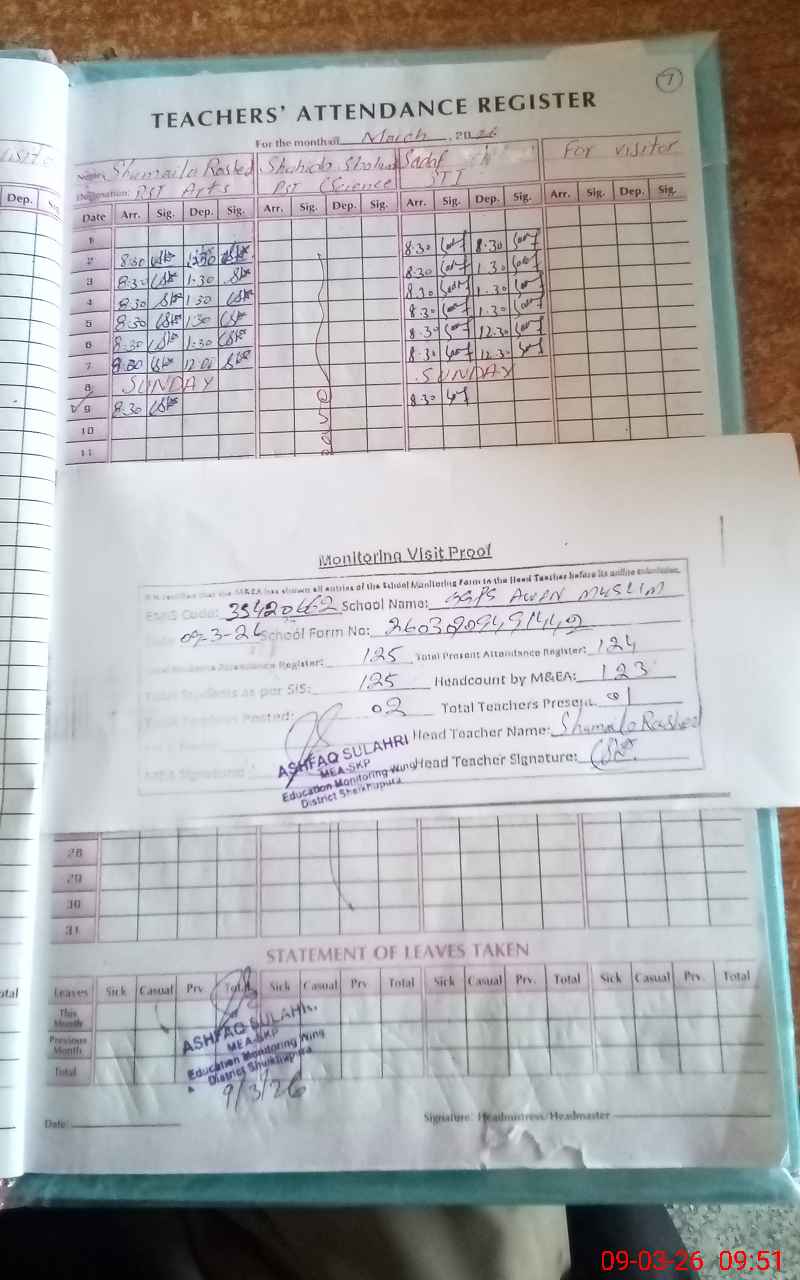 7
TEACHERS' ATTENDANCE REGISTER
For the month of March, 2026
Name: Shumaila Rashed Shahida Sadaf For visitor
Designation: PST Arts PST (Science STI
Dep. Date Arr. Sig. Dep. Sig. Arr. Sig. Dep. Sig. Arr. Sig. Dep. Sig. Arr. Sig. Dep. Sig.
1
2 8:30 1:30 8:30 8:30
3 8:30 1:30 8:30 1:30
4 8:30 1:30 8:30 1:30
5 8:30 1:30 8:30 1:30
6 8:30 1:30 8:30 12:30
7 8:30 12:00 8:30 12:30
8 SUNDAY SUNDAY
9 8:30 8:30
10
11
Monitoring Visit Proof
It is certified that the M&EA has shown all entries of the School Monitoring Form to the Head Teacher before its online submission.
EMIS Code: 35420462 School Name: GGPS AWAN MUSLIM
09-3-26 School Form No:
Attendance Register: 125 Total Present Attendance Register: 124
Total Students as per SIS: 125 Headcount by M&EA: 123
Posted: 02 Total Teachers Present: 01
Head Teacher Name: Shumaila Rashed
Head Teacher Signature:
ASHFAQ SULAHRI
MEA-SKP
Education Monitoring Wing
District Sheikhupura
28
29
30
31
STATEMENT OF LEAVES TAKEN
Leaves Sick Casual Prv. Total Sick Casual Prv Total Sick Casual Prv. Total Sick Casual Prv. Total
This Month
Previous Month
Total
ASHFAQ SULAHRI
MEA-SKP
Education Monitoring Wing
District Sheikhupura
9/3/26
Date: Signature: Headmistress/Headmaster
09-03-26 09:51